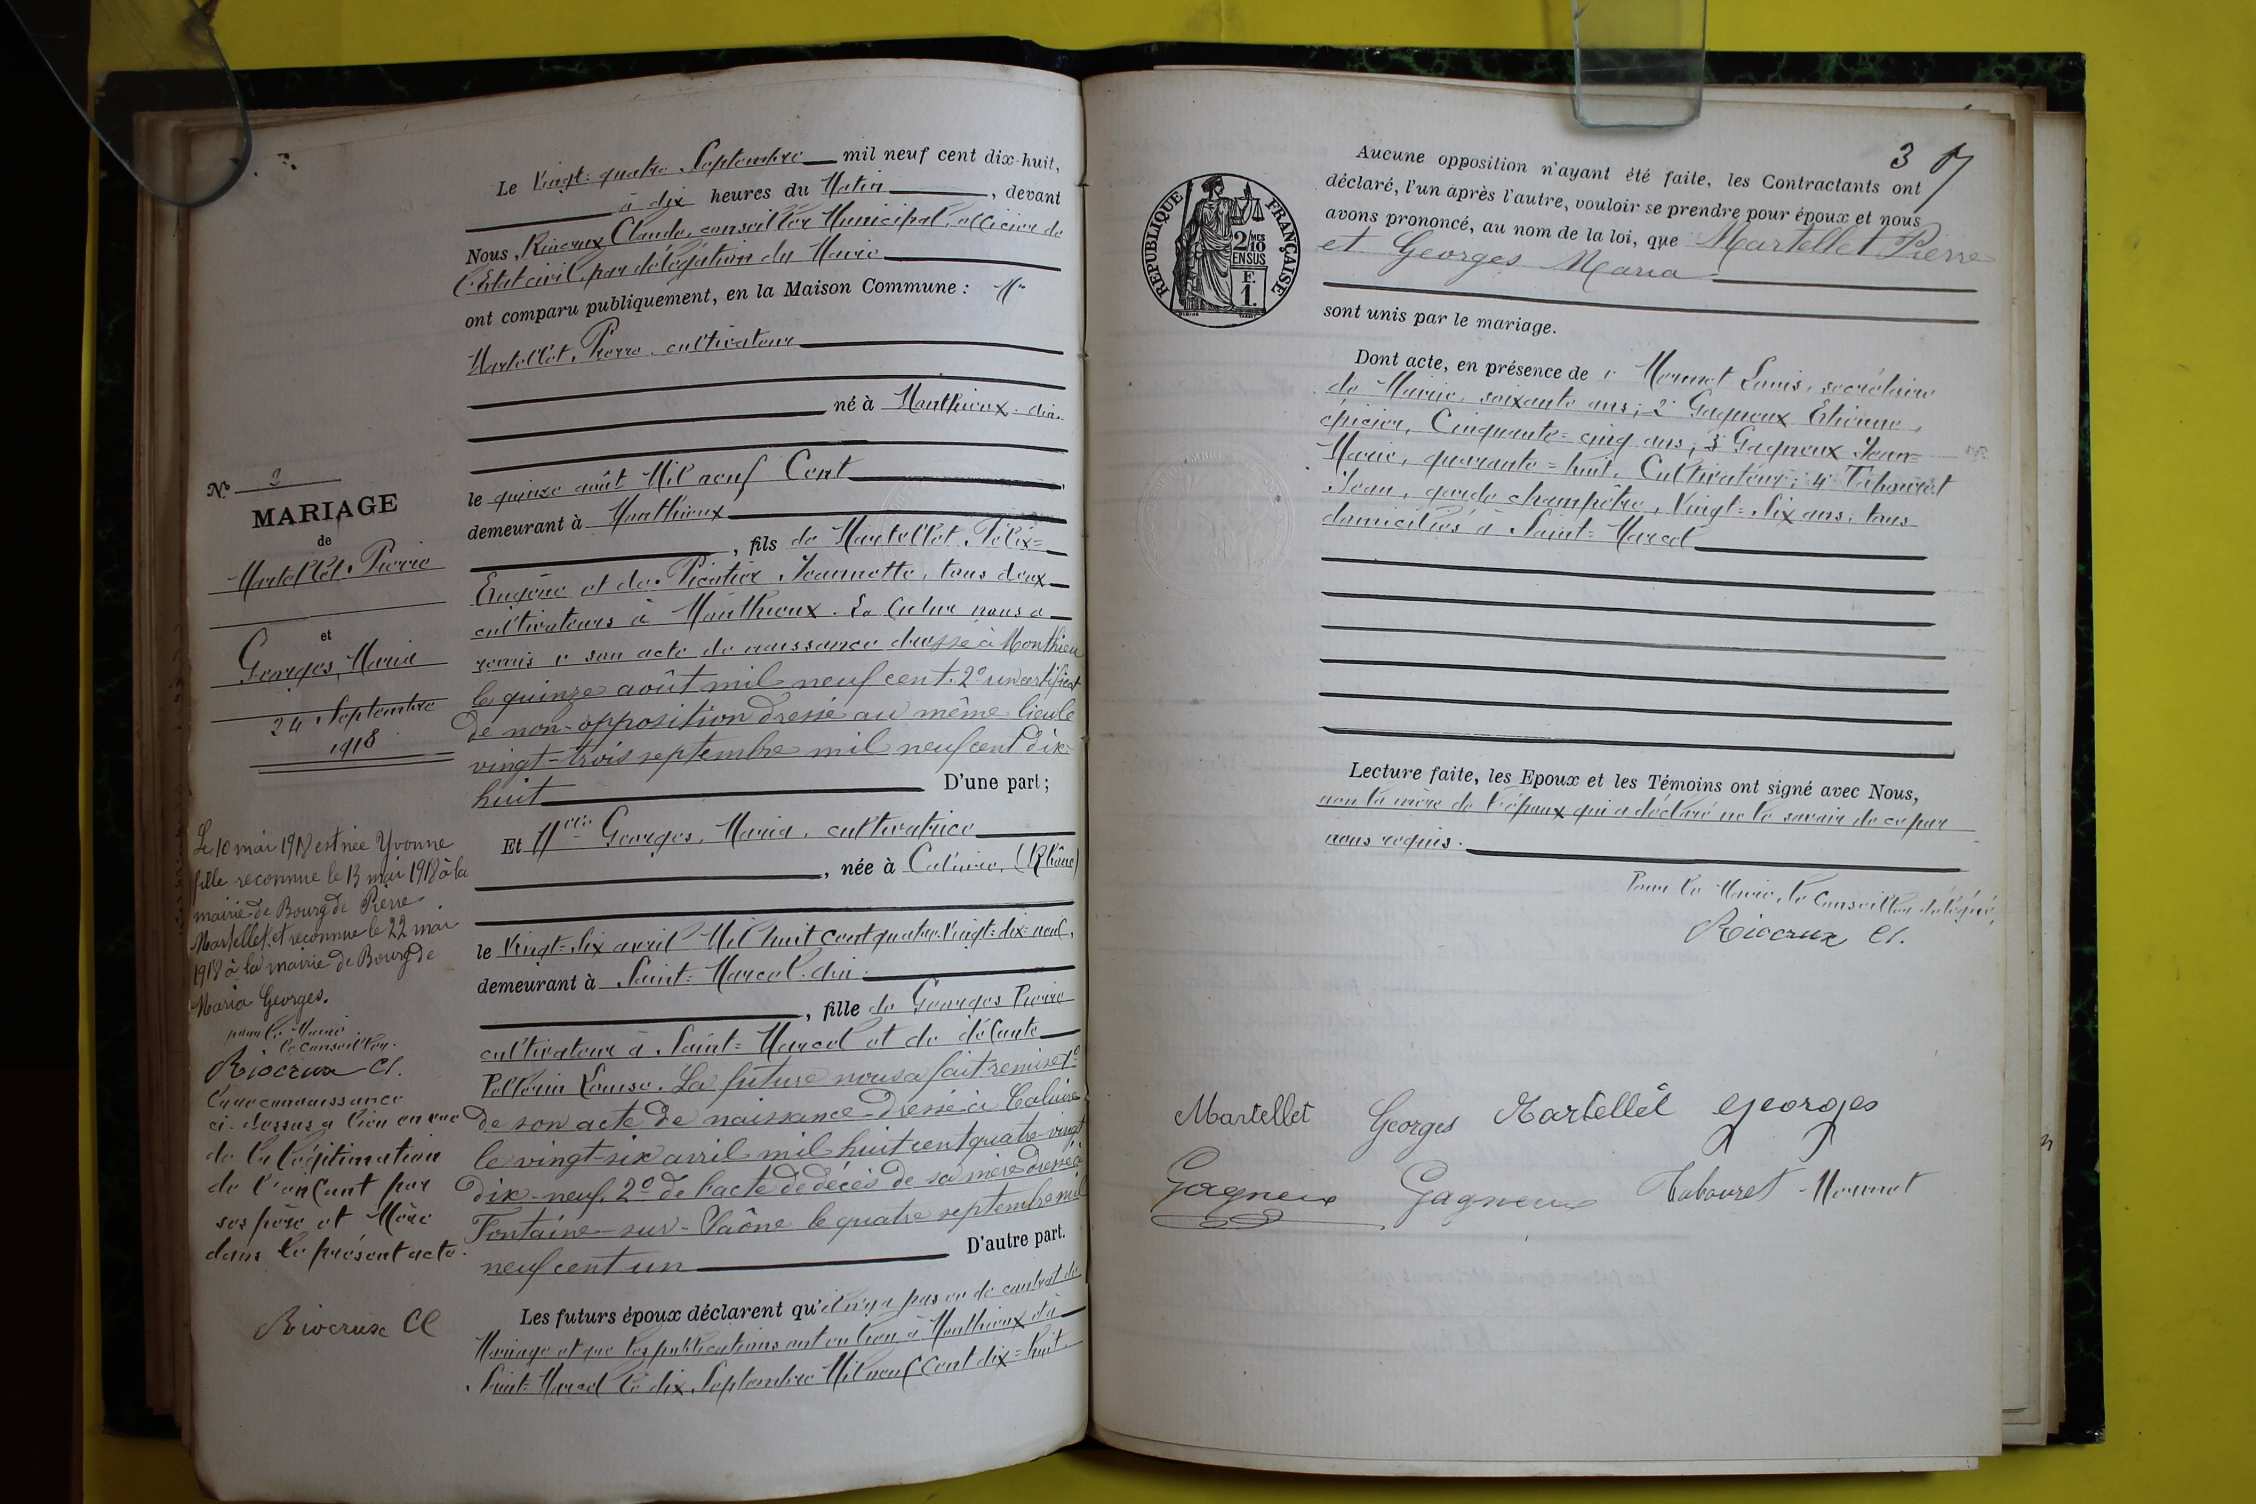 Le Vingt-quatre Septembre mil neuf cent dix-huit,
à dix heures du Matin, devant
Nous, Riocrux Claude, conseiller Municipal, officier de
l'Etat civil par délégation du Maire
ont comparu publiquement, en la Maison Commune : Mr
Martellet, Pierre, cultivateur
né à Monthieux, Ain
le quinze août Mil neuf Cent
demeurant à Monthieux
, fils de Martellet, Félix=
Eugène et de Jeannette, tous deux
cultivateurs à Monthieux. Le futur nous a
remis 1° son acte de naissance dressé à Monthieu
le quinze août mil neuf cent. 2° un certificat
de non-opposition dressé au même lieu le
vingt-trois septembre mil neuf cent dix-
huit D'une part ;
Et Melle Georges, Maria, cultivatrice
, née à Caluire, (Rhône)
le Vingt=Six avril Mil huit cent quatre-Vingt=dix=neuf,
demeurant à Saint=Marcel. Ain.
, fille de Georges Pierre
cultivateur à Saint=Marcel et de défunte
Louise. La future nous a fait remise 1°
de son acte de naissance dressé à Caluire
le vingt-six avril mil huit cent quatre-vingt
dix-neuf. 2° de l'acte de décès de sa mère dressé à
Fontaine-sur-Saône le quatre septembre mil
neuf cent un D'autre part.
Les futurs époux déclarent qu'il n'y a pas eu de contrat de
Mariage et que les publications ont eu lieu à Monthieux et à
Saint=Marcel le dix Septembre Mil neuf Cent dix=huit.
No 3
MARIAGE
de
Martellet, Pierre
et
Georges, Maria
24 Septembre
1918
Le 10 mai 1918 est née Yvonne
fille reconnue le 13 mai 1918 à la
mairie de Bourg de Pierre
Martellet et reconnue le 22 mai
1918 à la mairie de Bourg de
Maria Georges.
pour le Maire
le conseiller.
Riocrux Cl.
La reconnaissance
ci-dessus a lieu en vue
de la légitimation
de l'enfant par
ses père et Mère
dans le présent acte.
Riocrux Cl
3
RÉPUBLIQUE FRANÇAISE
2/MES
10
EN SUS
F.
1.
Aucune opposition n'ayant été faite, les Contractants ont
déclaré, l'un après l'autre, vouloir se prendre pour époux et nous
avons prononcé, au nom de la loi, que Martellet Pierre
et Georges Maria
sont unis par le mariage.
Dont acte, en présence de 1° Mermet Louis, secrétaire
de Mairie, soixante ans ; 2° Gagneux Etienne,
épicier, Cinquante=cinq ans ; 3° Gagneux Jean=
Marie, quarante=huit, Cultivateur ; 4°
Jean, garde champêtre, Vingt=Six ans, tous
domiciliés à Saint=Marcel
Lecture faite, les Epoux et les Témoins ont signé avec Nous,
non la mère de l'époux qui a déclaré ne le savoir de ce par
nous requis.
Pour le Maire, le Conseiller délégué,
Riocrux Cl.
Martellet Georges Martellet Georges
Gagneux Gagneux Tabouret Mermet